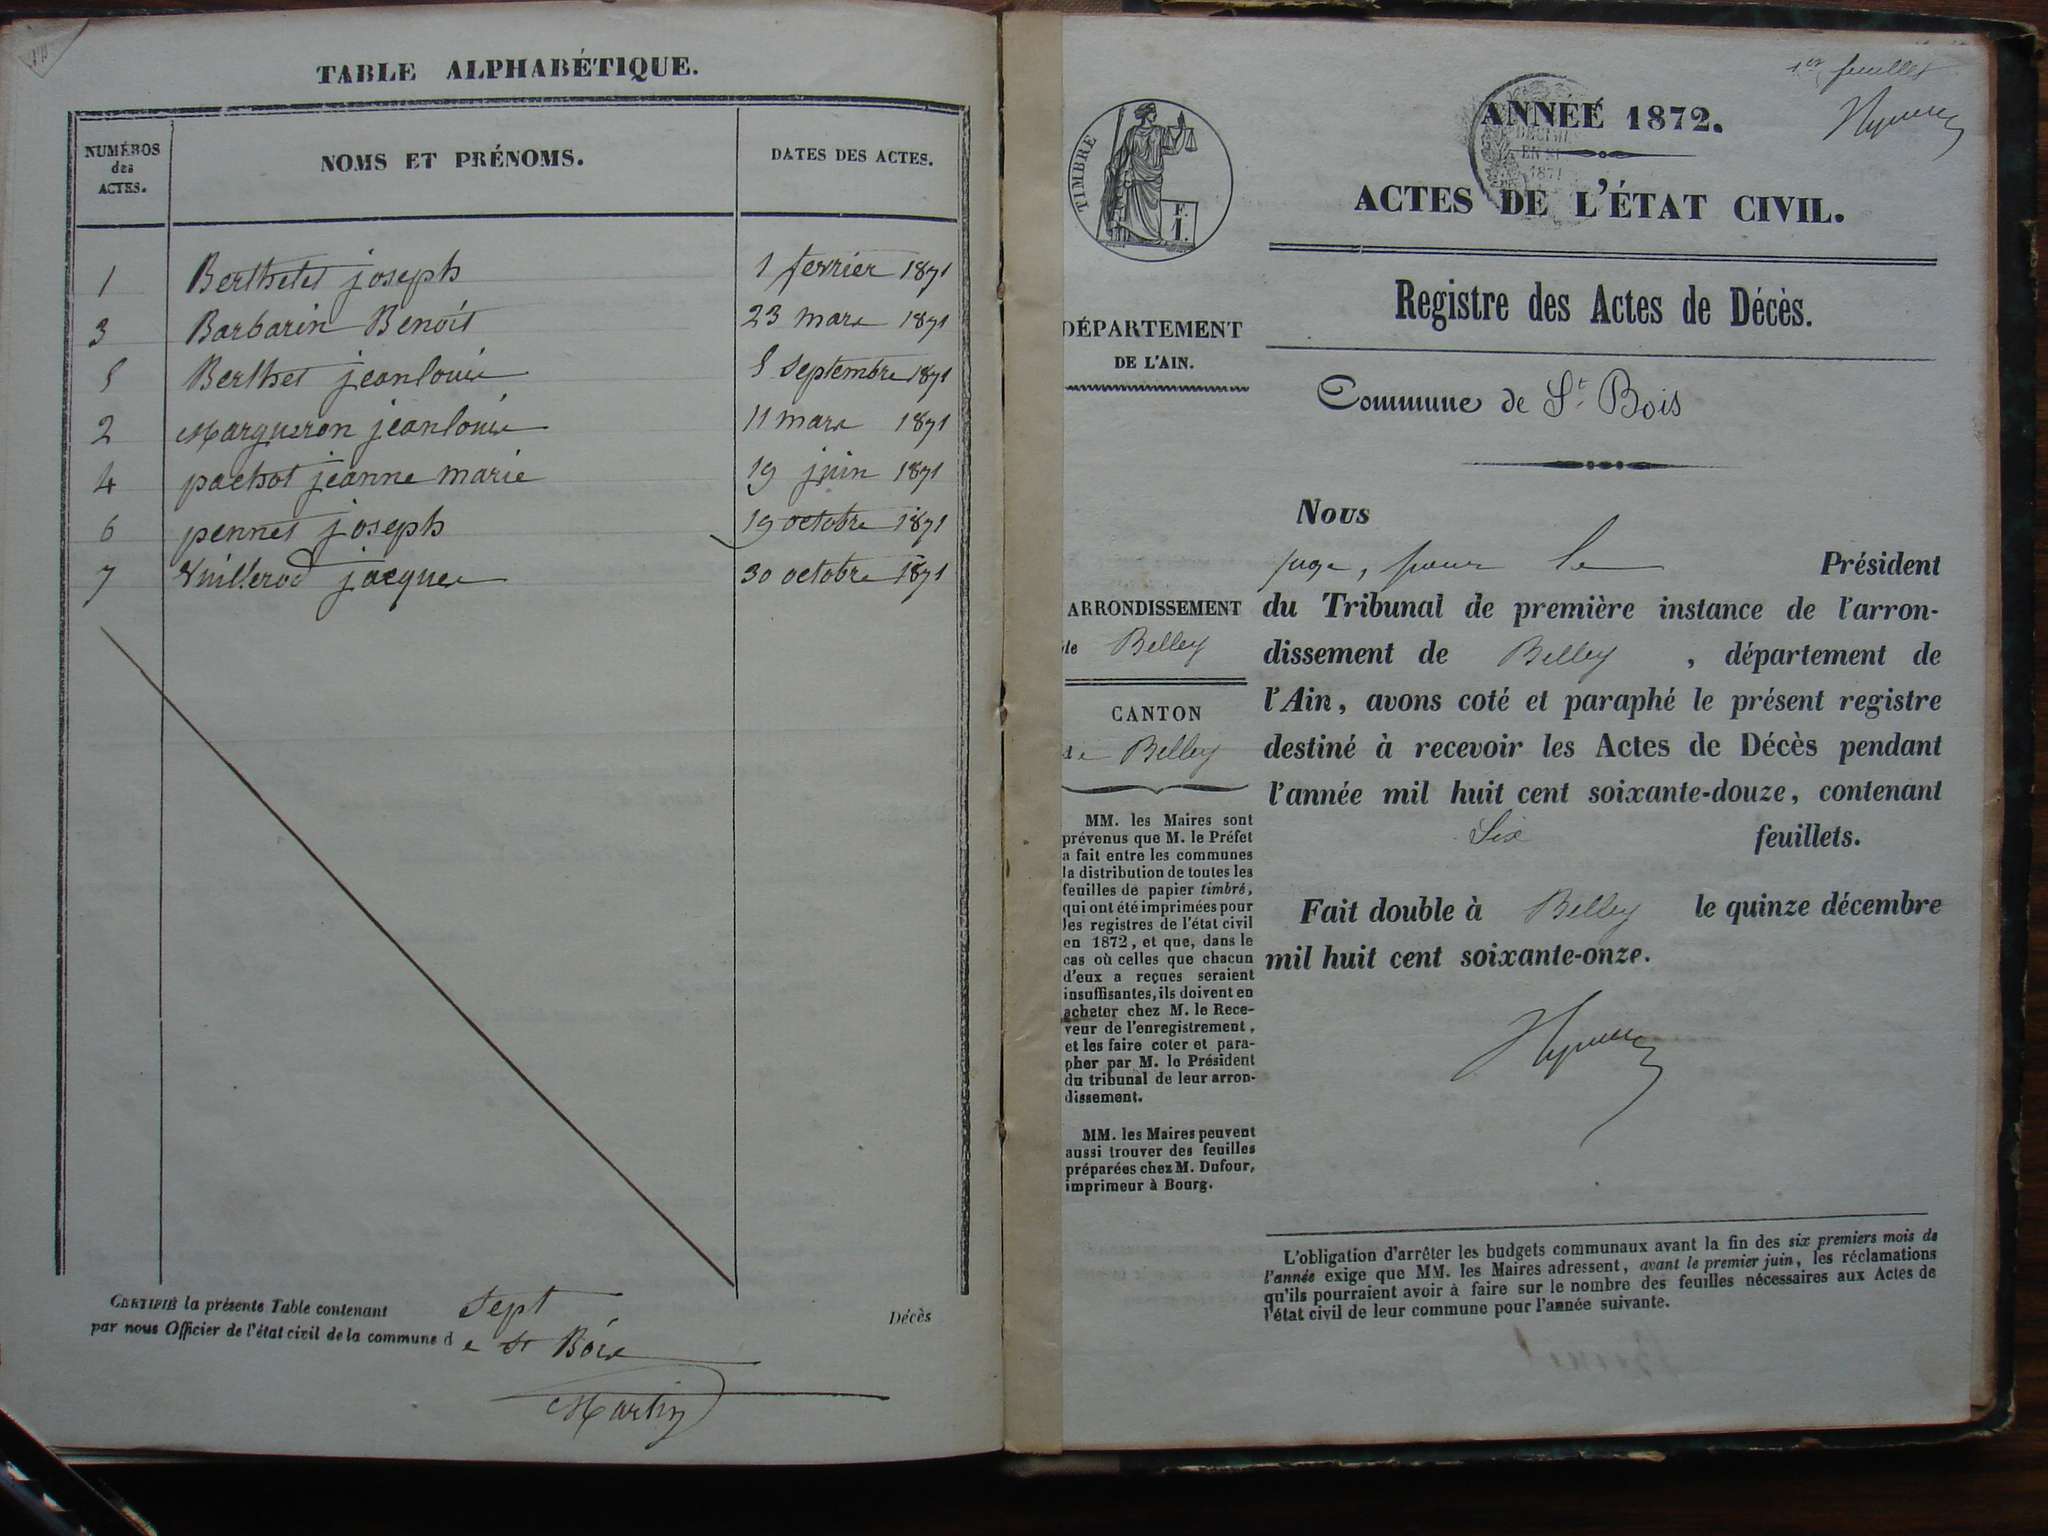 TABLE ALPHABÉTIQUE.
NUMÉROS
des
ACTES.
NOMS ET PRÉNOMS.
DATES DES ACTES.
1 Berthetet joseph 1 fevrier 1871
3 Barbarin Benoit 23 mars 1871
5 Berthet jeanlouis 5 septembre 1871
2 Margueron jeanlouis 11 mars 1871
4 pachot jeanne marie 19 juin 1871
6 pennet joseph 19 octobre 1871
7 Vuillerod jacques 30 octobre 1871
CERTIFIÉ la présente Table contenant sept Décès
par nous Officier de l'état civil de la commune d e St Bois
Martin
1er feuillet
TIMBRE
F.
1.
DÉPARTEMENT
DE L'AIN.
ARRONDISSEMENT
de Belley
CANTON
de Belley
MM. les Maires sont
prévenus que M. le Préfet
a fait entre les communes
la distribution de toutes les
feuilles de papier timbré,
qui ont été imprimées pour
les registres de l'état civil
en 1872, et que, dans le
cas où celles que chacun
d'eux a reçues seraient
insuffisantes, ils doivent en
acheter chez M. le Rece-
veur de l'enregistrement,
et les faire coter et para-
pher par M. le Président
du tribunal de leur arron-
dissement.
MM. les Maires peuvent
aussi trouver des feuilles
préparées chez M. Dufour,
imprimeur à Bourg.
ANNÉE 1872.
1871
ACTES DE L'ÉTAT CIVIL.
Registre des Actes de Décès.
Commune de St. Bois
Nous
juge, pour le Président
du Tribunal de première instance de l'arron-
dissement de Belley, département de
l'Ain, avons coté et paraphé le présent registre
destiné à recevoir les Actes de Décès pendant
l'année mil huit cent soixante-douze, contenant
Six feuillets.
Fait double à Belley le quinze décembre
mil huit cent soixante-onze.
L'obligation d'arrêter les budgets communaux avant la fin des six premiers mois de
l'année exige que MM. les Maires adressent, avant le premier juin, les réclamations
qu'ils pourraient avoir à faire sur le nombre des feuilles nécessaires aux Actes de
l'état civil de leur commune pour l'année suivante.